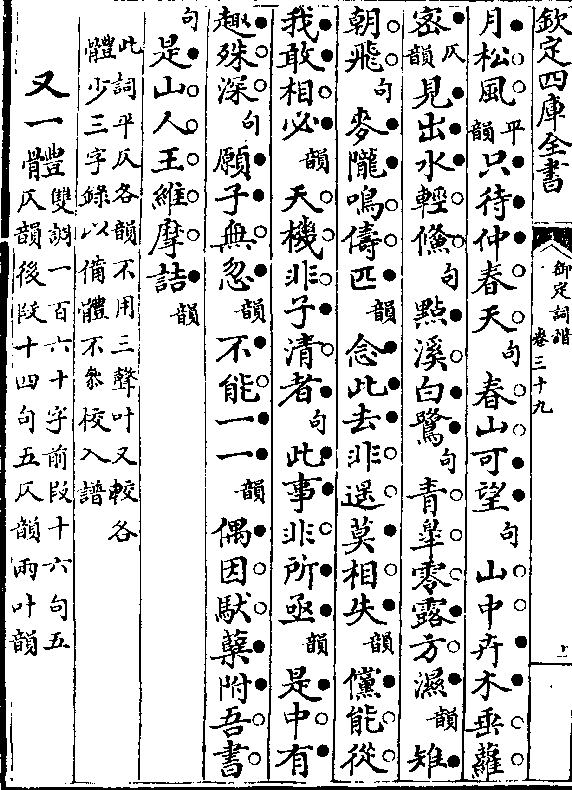 欽定四庫全書
御定詞譜
卷三十九
月松風平韻只待仲春天句春山可望句山中卉木垂蘿
密仄韻見出水輕鯈句點溪白鷺句青皋零露方濕韻雉
朝飛句麥隴鳴儔匹韻念此去非遥莫相失韻儻能從
我敢相必韻天機非子清者句此事非所亟韻是中有
趣殊深句願子無忽韻不能一一韻偶因䭾蘖附吾書
句是山人王維摩詰韻
此詞平仄各韻不用三聲叶又較各
體少三字錄以備體不叅校入譜
又一體雙調一百六十字前段十六句五
仄韻後段十四句五仄韻兩叶韻